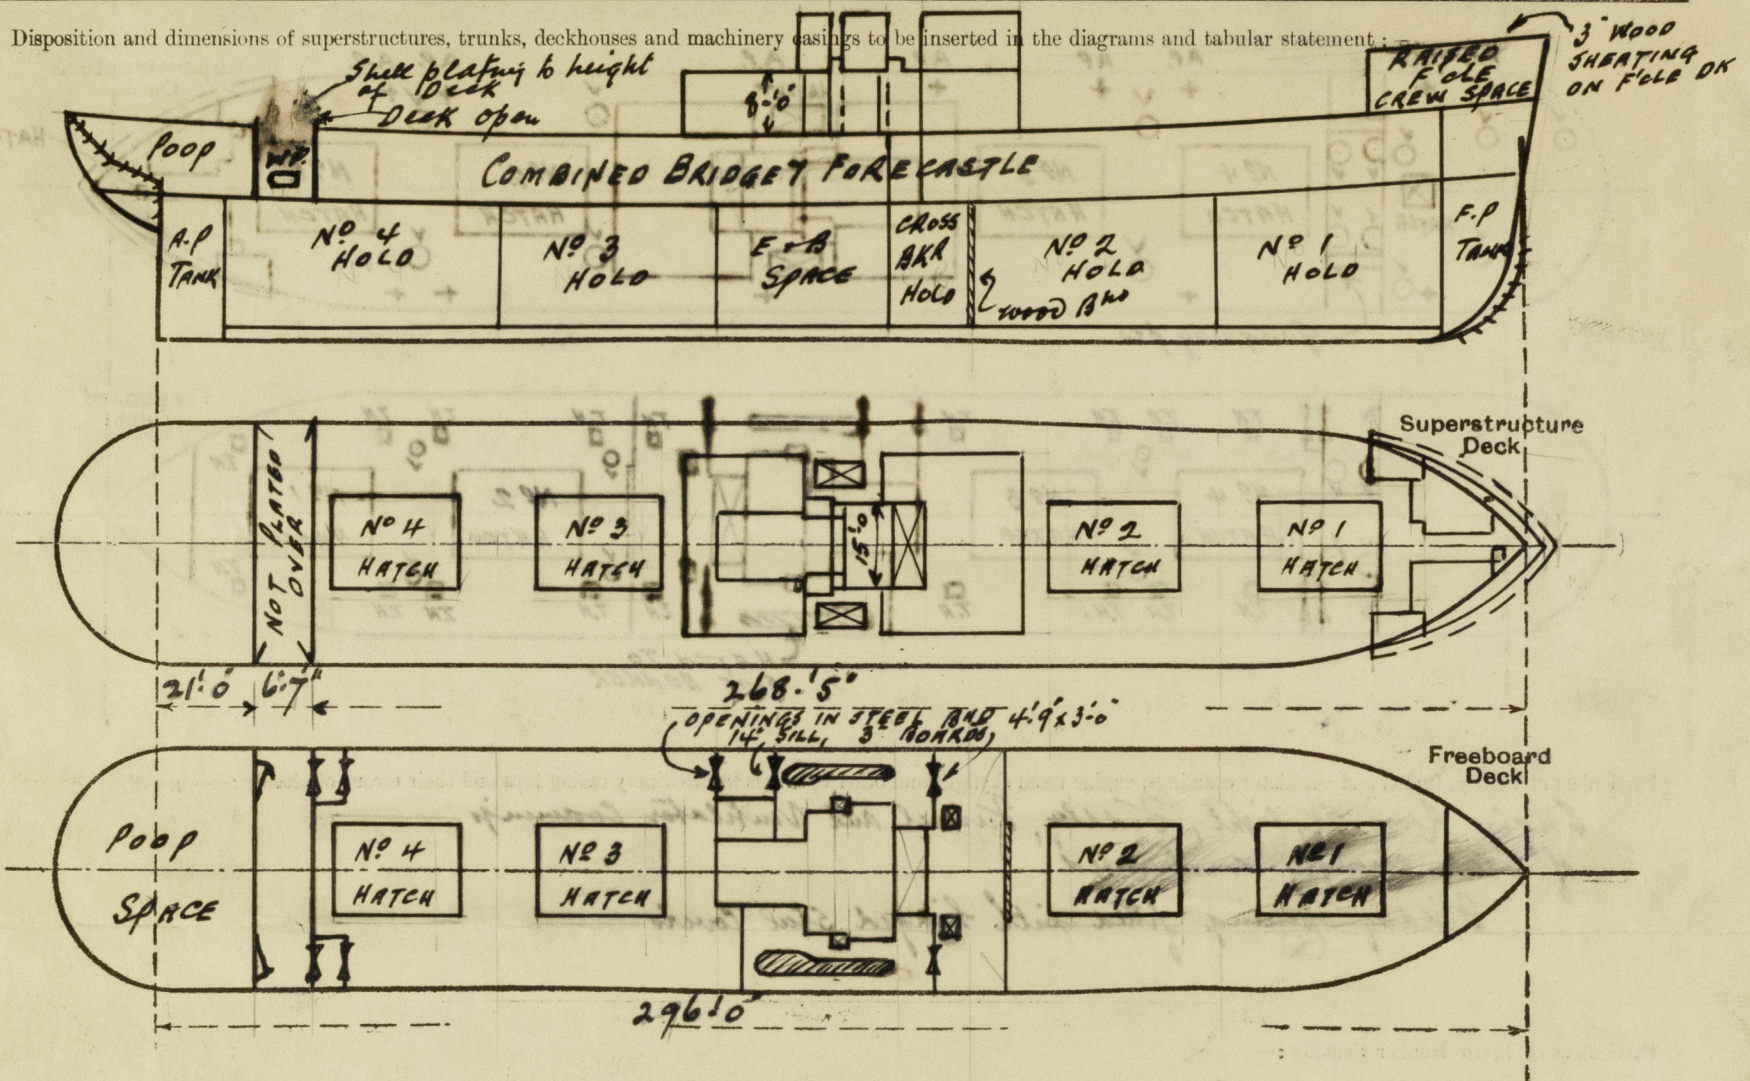 Disposition and dimensions of superstructures, trunks, deckhouses and machinery casings to be inserted in the diagrams and tabular statement :—
3" WOOD
SHEATING
ON F'CLE DK
RAISED
F'CLE
CREW SPACE
Shell plating to height
of Deck
Deck open
8'-0"
POOP
W.P.
COMBINED BRIDGE & FORECASTLE
A.P
TANK
Nº 4
HOLD
Nº 3
HOLD
E & B
SPACE
CROSS
BKR
HOLD
Nº 2
HOLD
WOOD BHD
Nº 1
HOLD
F.P
TANK
Superstructure
Deck
NOT PLATED
OVER
Nº 4
HATCH
Nº 3
HATCH
15'-0
Nº 2
HATCH
Nº 1
HATCH
21'-0" 6'-7"
268'-5"
OPENINGS IN STEEL BHD 4'-9" x 3'-0"
14" SILL, 3" BOARDS
Freeboard
Deck
POOP
SPACE
Nº 4
HATCH
Nº 3
HATCH
Nº 2
HATCH
Nº 1
HATCH
296'-0"